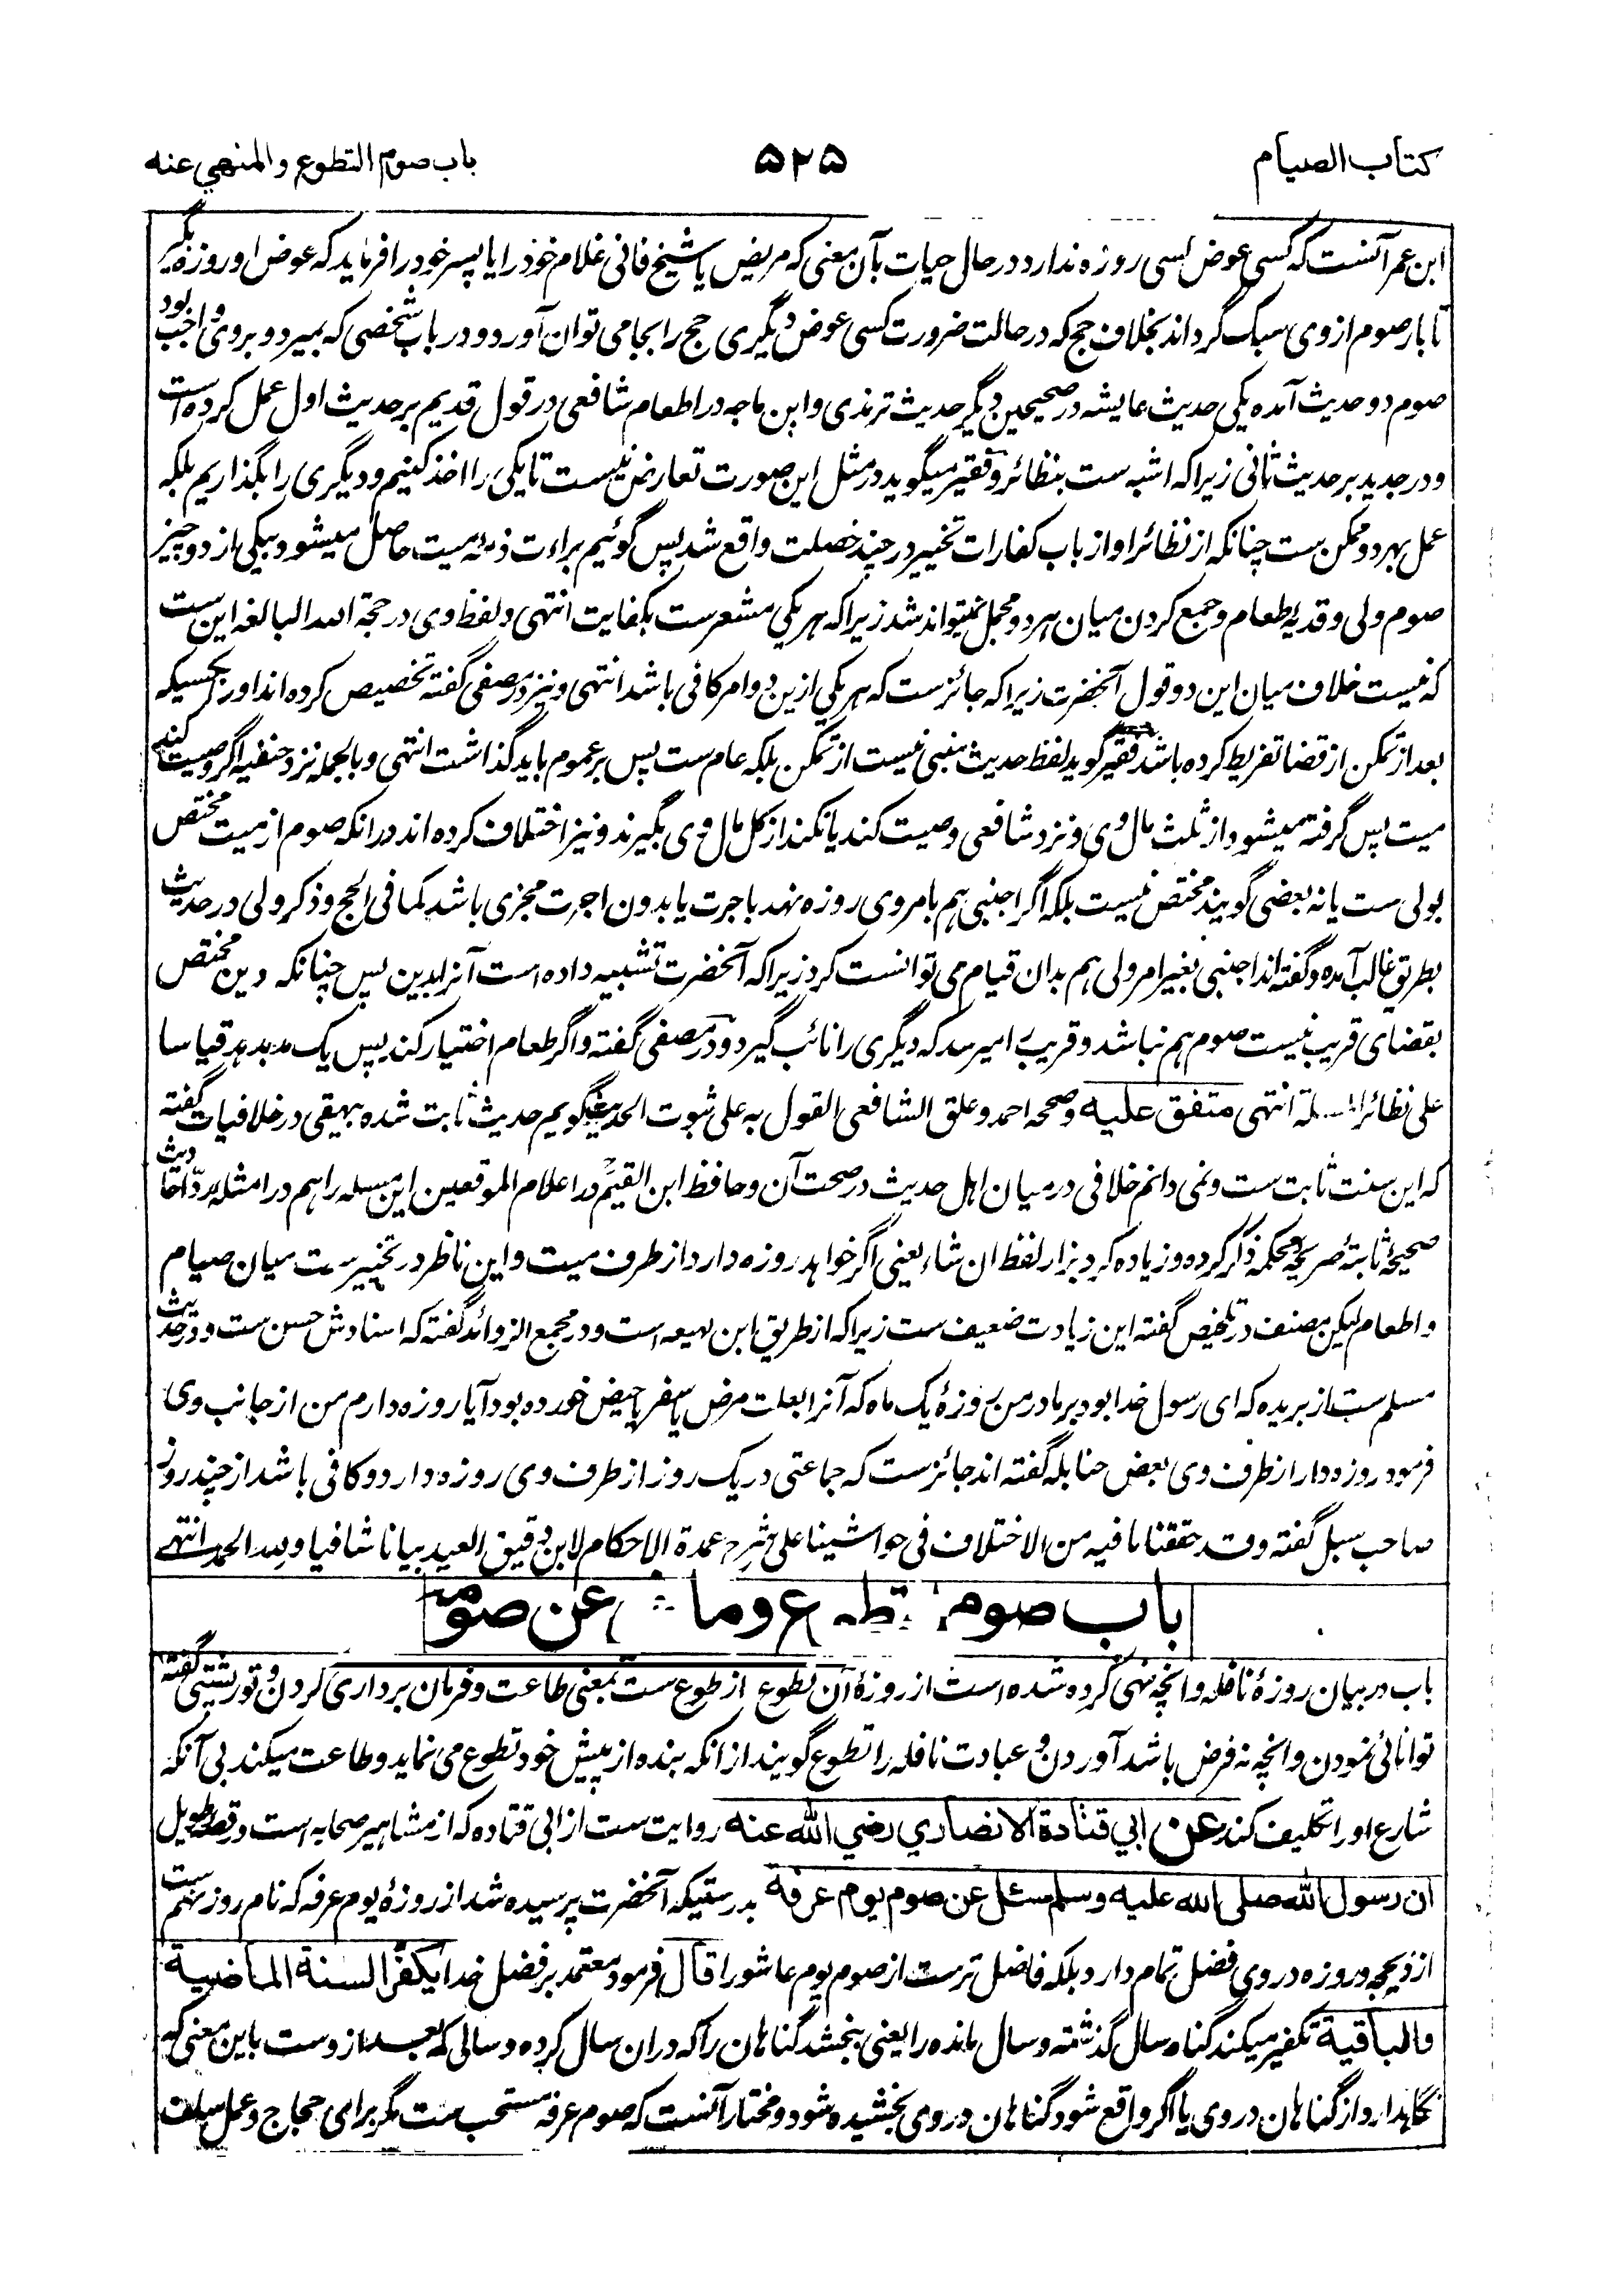 کتاب الصیام
۵۲۵
باب صوم التطوع والمنهي عنه
ابن عمر آنست که کسی عوض کسی روزه ندارد در حال حیات بآن معنی که مریض یا شیخ فانی غلام خود را یا پسر خود را فرماید که عوض او روزه بگیر
تا بار صوم از وی سبک گرداند بخلاف حج که در حالت ضرورت کسی عوض دیگری حج را بجا می توان آورد و در باب شخصی که بمیرد و بروی واجب بود
صوم دو حدیث آمده یکی حدیث عایشه در صحیحین دیگر حدیث ترمذی و ابن ماجه در اطعام شافعی در قول قدیم بر حدیث اول عمل کرده است
و در جدید بر حدیث ثانی زیرا که اشبه ست بنظائر و فقیر میگوید در مثل این صورت تعارض نیست تا یکی را اخذ کنیم و دیگری را بگذاریم بلکه
عمل بهر دو ممکن ست چنانکه از نظائر او از باب کفارات تخییر در چند خصلت واقع شد پس گوئیم براءت ذمه میت حاصل میشود بیکی از دو چیز
صوم ولی و فدیهٔ طعام و جمع کردن میان هر دو محمل نمیتواند شد زیرا که هر یکی مشعر ست بکفایت انتهی و لفظ وی در حجة الله البالغه این ست
که نیست خلاف میان این دو قول آنحضرت زیرا که جائز ست که هر یکی ازین دو امر کافی باشد انتهی و نیز در مصفی گفته تخصیص کرده اند اورا بکسیکه
بعد از تمکن از قضا تفریط کرده باشد فقیر گوید لفظ حدیث منبی نیست از تمکن بلکه عام ست پس بر عموم باید گذاشت انتهی و بالجمله نزد حنفیه اگر وصیت کند
میت پس گرفته میشود از ثلث مال وی و نزد شافعی وصیت کند یا نکند از کل مال وی بگیرند و نیز اختلاف کرده اند در انکه صوم از میت مختص
بولی ست یا نه بعضی گویند مختص نیست بلکه اگر اجنبی هم بامر وی روزه نهد باجرت یا بدون اجرت مجزی باشد کما فی الحج و ذکر ولی در حدیث
بطریق غالب آمده و گفته اند اجنبی بغیر امر ولی هم بدان قیام می توانست کرد زیرا که آنحضرت تشبیه داده است آنرا بدین پس چنانکه دین مختص
بقضای قریب نیست صوم هم نباشد و قریب را میرسد که دیگری را نائب گیرد و در مصفی گفته و اگر طعام اختیار کند پس یک مد بدهد قیاسا
علی نظائر المسئلة انتهی متفق علیه و صححه احمد و علق الشافعی القول به علی ثبوت الحدیث میگویم حدیث ثابت شده بیهقی در خلافیات گفته
که این سنت ثابت ست و نمی دانم خلافی در میان اهل حدیث در صحت آن و حافظ ابن القیم در اعلام الموقعین این مسئله را هم در امثله رد احادیث
صحیحهٔ ثابتهٔ صریحهٔ محکمه ذکر کرده و زیاده کرد بزار لفظ ان شاء یعنی اگر خواهد روزه دارد از طرف میت و این ناظر در تخییر ست میان صیام
و اطعام لیکن مصنف در تلخیص گفته این زیادت ضعیف ست زیرا که از طریق ابن لهیعه است و در مجمع الزوائد گفته که اسنادش حسن ست و در حدیث
مسلم ست از بریده که ای رسول خدا بود بر مادر من روزهٔ یک ماه که آنرا بعلت مرض یا سفر یا حیض خورده بود آیا روزه دارم من از جانب وی
فرمود روزه دار از طرف وی بعض حنابله گفته اند جائز ست که جماعتی در یک روز از طرف وی روزه دارد و کافی باشد از چند روز
صاحب سبل گفته وقد حققنا ما فیه من الاختلاف فی حواشینا علی شرح عمدة الاحکام لابن دقیق العید بیانا شافیا ولله الحمد انتهی
باب صوم عن صوم
باب در بیان روزهٔ نافله و انچه نهی کرده شده است از روزهٔ آن تطوع از طوع ست بمعنی طاعت و فرمان برداری کردن و تورپشتی گفته
توانائی نمودن و انچه نه فرض باشد آوردن و عبادت نافله را تطوع گویند از انکه بنده از پیش خود تطوع می نماید و طاعت میکند بی آنکه
شارع او را تکلیف کند عن ابي قتادة الانصاري رضي الله عنه روایت ست از ابی قتاده که از مشاهیر صحابه است در قصهٔ طویل
ان رسول الله صلى الله عليه وسلم سئل عن صوم يوم عرفة بدرستیکه آنحضرت پرسیده شد از روزهٔ یوم عرفه که نام روز نهم ست
از ذیحجه و روزه در وی فضل تمام دارد بلکه فاضل تر ست از صوم یوم عاشورا قال فرمود معتمد بر فضل خدا يكفر السنة الماضية
والباقية تکفیر میکند گناه سال گذشته و سال مانده را یعنی بنخشد گناهان را که دران سال کرده و سالی که بعد از وست باین معنی که
نگاهدارد از گناهان در وی یا اگر واقع شود گناهان در وی بخشیده شود و مختار آنست که صوم عرفه مستحب ست مگر برای حجاج و عمل سلف